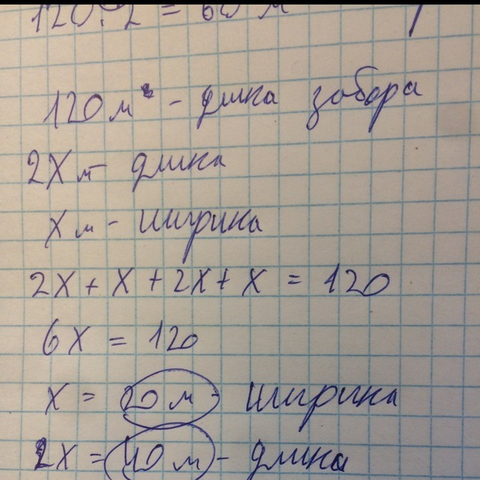 120:2 = 60 м
120 м - длина забора
2х м - длина
х м - ширина
2х + х + 2х + х = 120
6х = 120
х = 20 м - ширина
2х = 40 м - длина